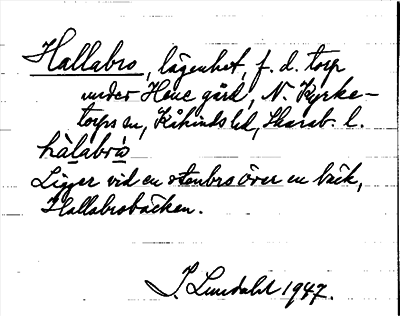 Hallabro, lägenhet, f. d. torp
under Hene gård, N. Kyrke-
torps sn, Kåkinds hd, Skarab. l.
hàlabrò
Ligger vid en stenbro över en bäck,
Hallabrobäcken.
J. Lundahl 1947.